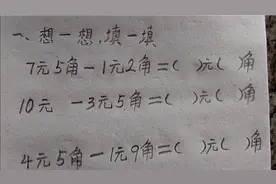 一、想一想，填一填
7元5角-1元2角=( )元( )角
10元 -3元5角=( )元( )角
4元5角-1元9角=( )元( )角